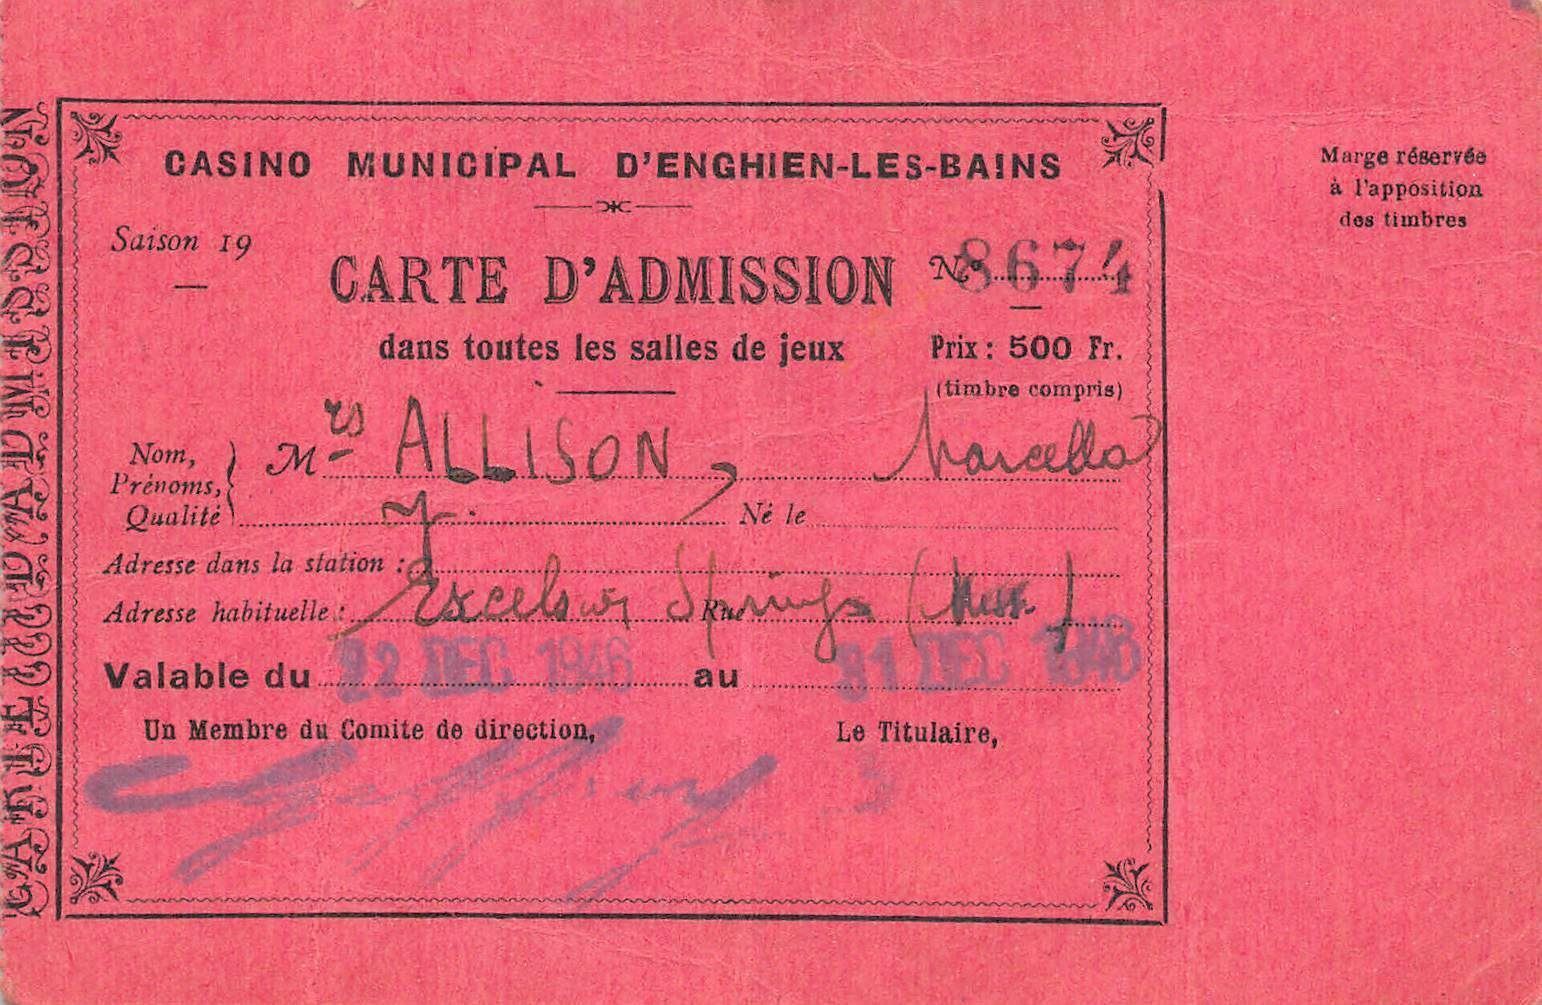 CARTE D'ADMISSION
CASINO MUNICIPAL D'ENGHIEN-LES-BAINS
Marge réservée
à l'apposition
des timbres
Saison 19
CARTE D'ADMISSION
No 8674
dans toutes les salles de jeux
Prix : 500 Fr.
(timbre compris)
Nom,
Prénoms,
Qualité
Mrs ALLISON, Marcella
J.
Né le
Adresse dans la station :
Adresse habituelle : Excelsior Springs Rue (Miss.)
Valable du 22 DEC 1946 au 31 DEC 1946
Un Membre du Comite de direction,
Le Titulaire,